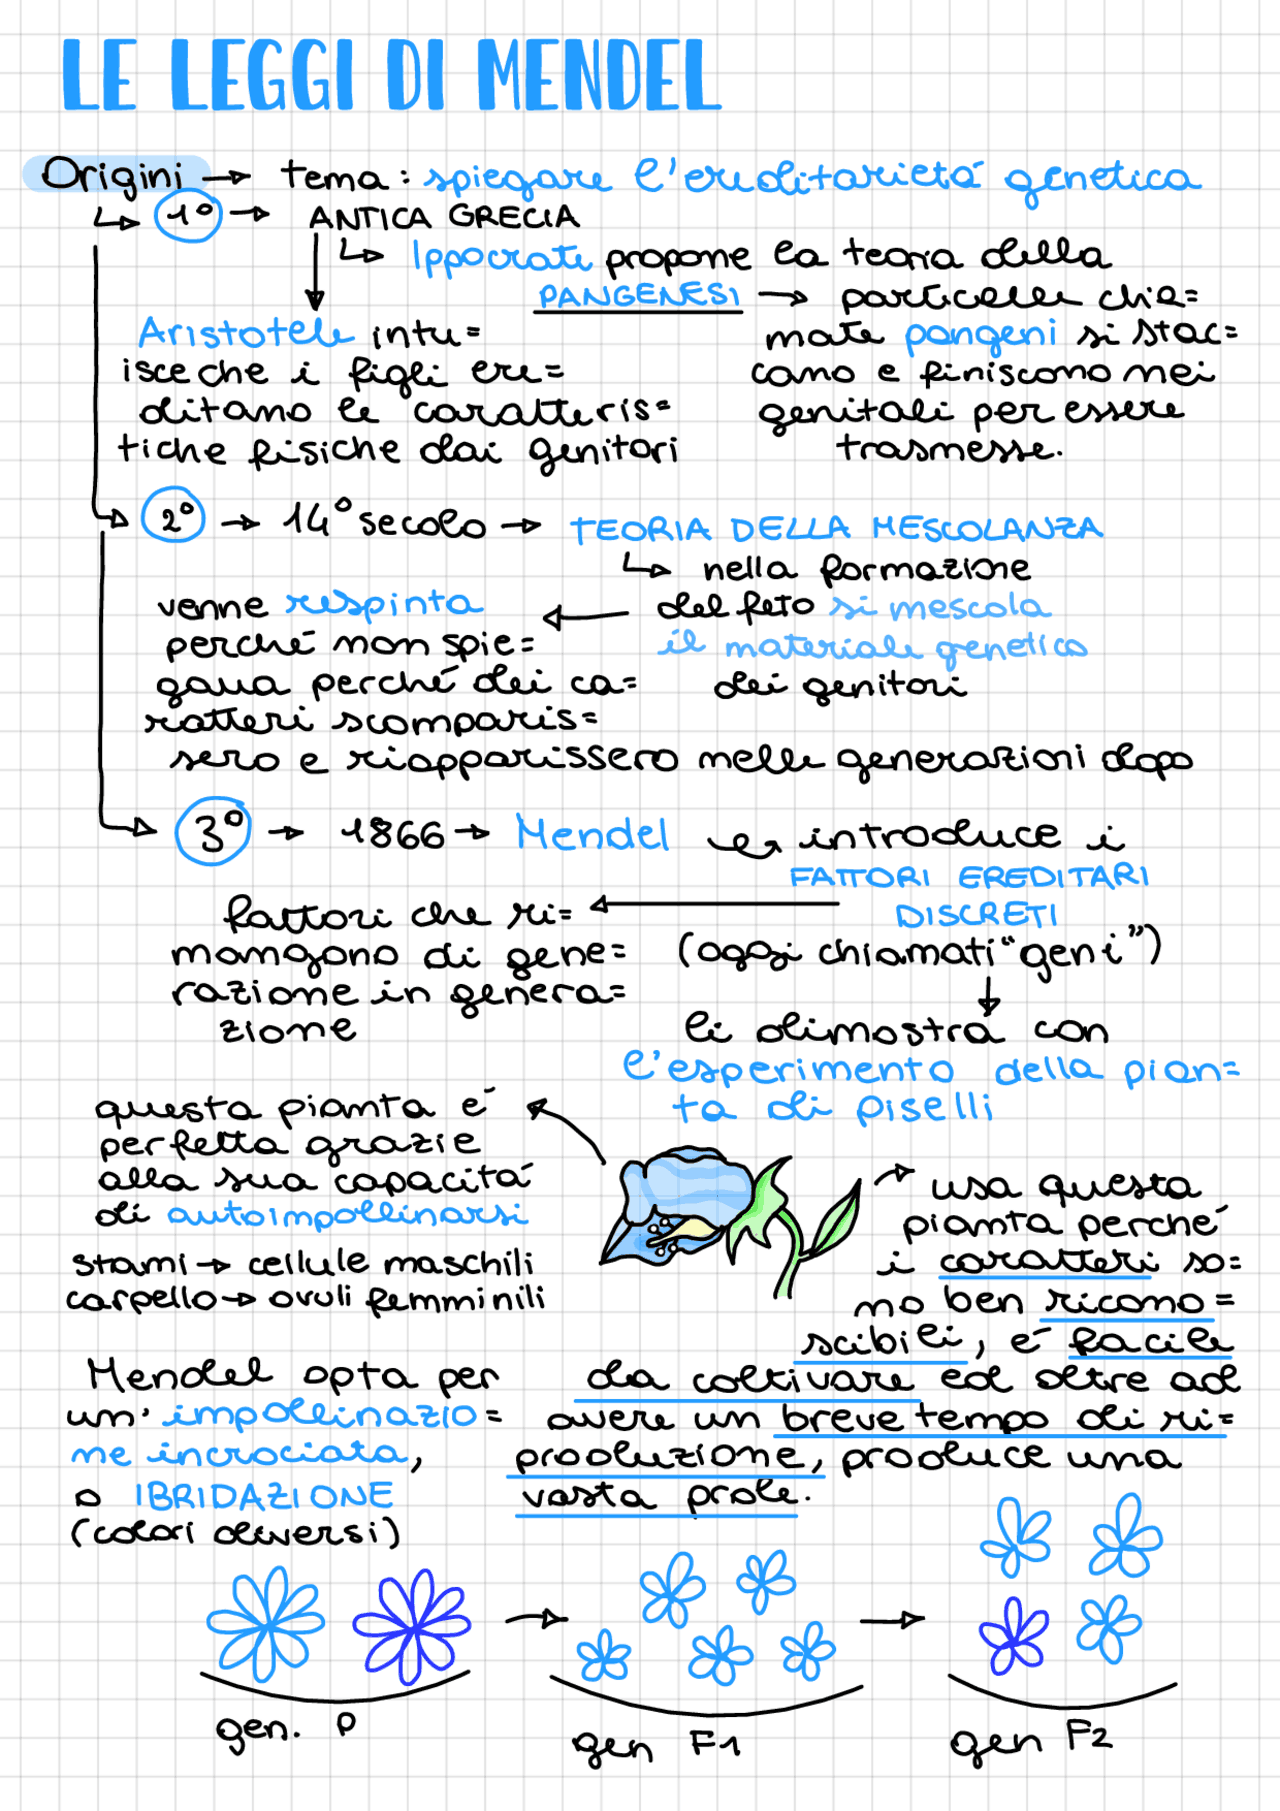 LE LEGGI DI MENDEL
Origini → tema: spiegare l'ereditarietá genetica
↳ 1° → ANTICA GRECIA
↳ Ippocrate propone la teoria della
PANGENESI → particelle chia=
mate pangeni si stac=
cano e finiscono nei
genitali per essere
trasmesse.
Aristotele intu=
isce che i figli ere=
ditano le caratteris=
tiche fisiche dai genitori
↳ 2° → 14° secolo → TEORIA DELLA MESCOLANZA
↳ nella formazione
del feto si mescola
il materiale genetico
dei genitori
venne respinta
perché non spie=
gava perché dei ca=
ratteri scomparis=
sero e riapparissero nelle generazioni dopo
↳ 3° → 1866 → Mendel → introduce i
FATTORI EREDITARI
DISCRETI
(oggi chiamati "geni")
fattori che ri=
mangono di gene=
razione in genera=
zione
li dimostra con
l'esperimento della pian=
ta di piselli
questa pianta é
perfetta grazie
alla sua capacitá
di autoimpollinarsi
stami → cellule maschili
carpello → ovuli femminili
usa questa
pianta perché
i caratteri so=
no ben ricono=
scibili, é facile
da coltivare ed oltre ad
avere un breve tempo di ri=
produzione, produce una
vasta prole.
Mendel opta per
un' impollinazio=
ne incrociata,
o IBRIDAZIONE
(colori diversi)
gen. P
gen F1
gen F2